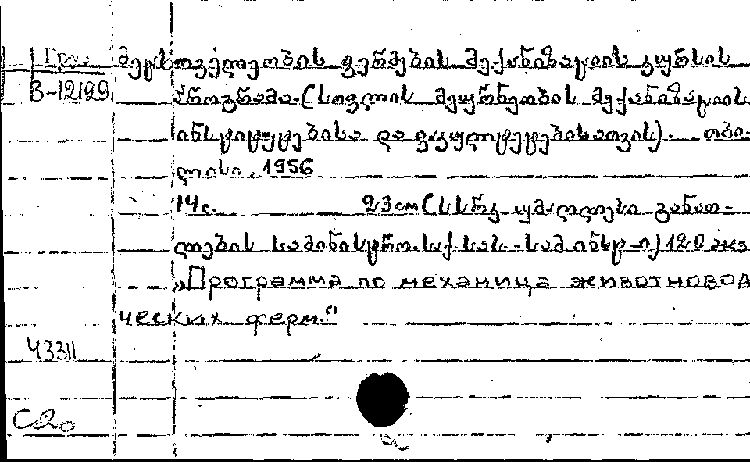 Груз. მეცხოველეობის ფერმების მექანიზაციის კურსის
В-12199 პროგრამა. (სოფლის მეურნეობის მექანიზაციის
ინსტიტუტებისა და ფაკულტეტებისათვის). თბი-
ლისი, 1956
14с. 23 см (სსრკ უმაღლესი განათ-
ლების სამინისტრო. საქ. სას.-სამ. ინსტ-ი) 120 экз
„Программа по механица животновод
ческих ферм."
43311